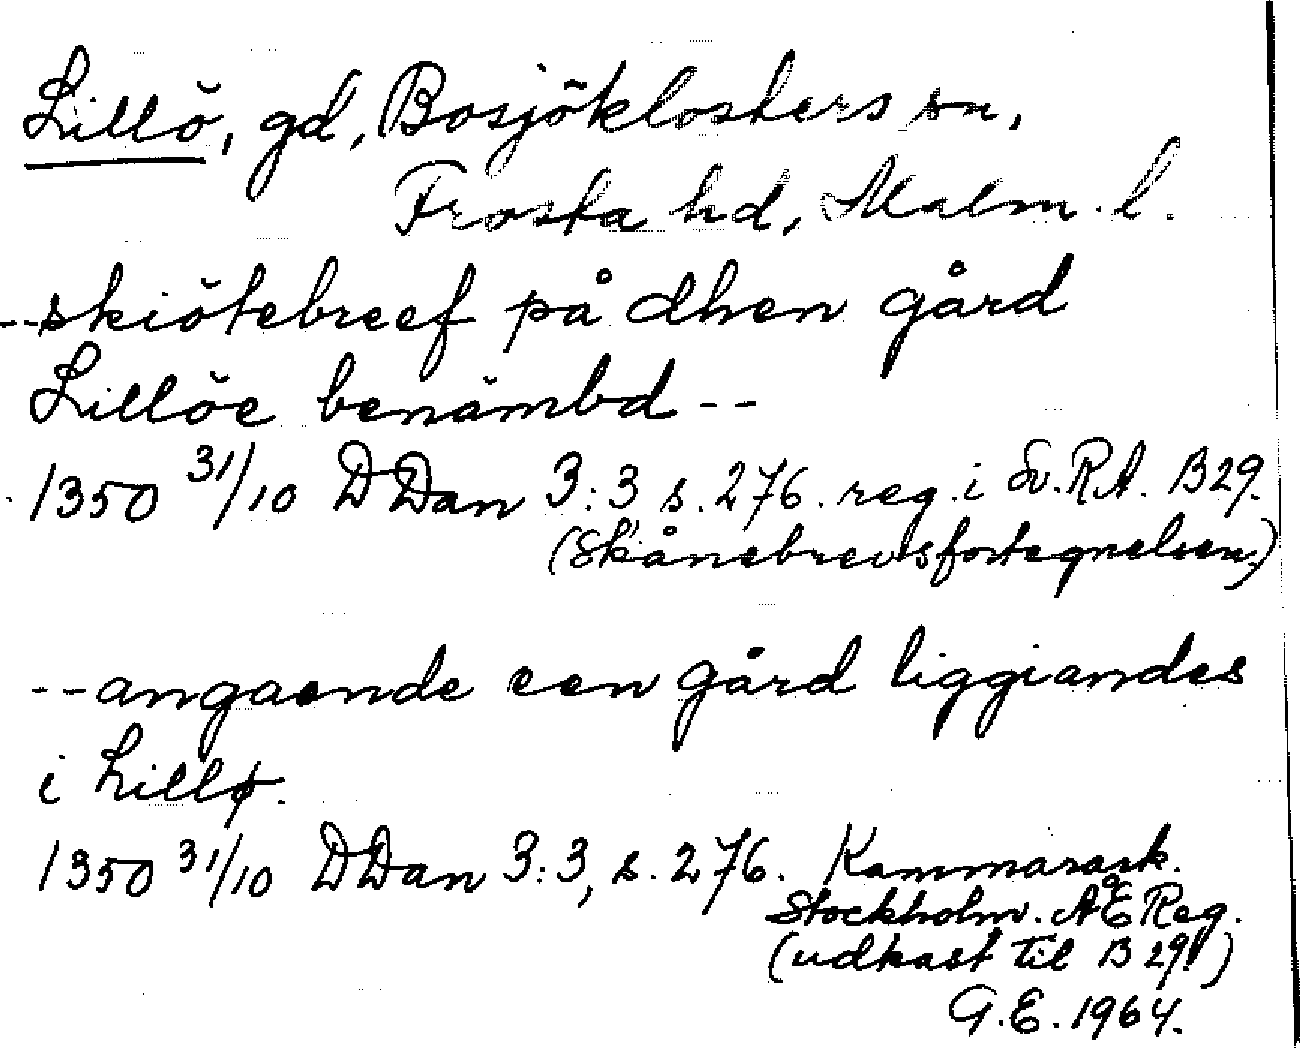 Lillö, gd, Bosjöklosters sn,
Frosta hd, Malm. l.
--skiötebreef på dhen gård
Lillöe benämbd --
1350 31/10 DDan 3:3 s. 276. reg. i Sv. RA. B 29.
(Skånebrevsfortegnelsen)
--angaende een gård liggiandes
i Lillø.
1350 31/10 DDan 3:3, s. 276. Kammarark.
Stockholm. ÅÆ Reg.
(udkast til B 29!)
G.E. 1964.